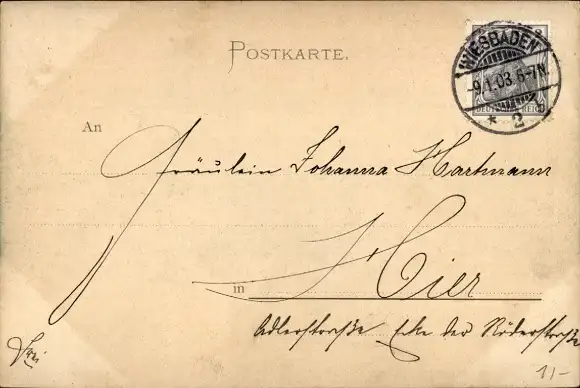 POSTKARTE.
WIESBADEN
-9.1.03 6-7N
* 2
DEUTSCHES REICH
An
Fräulein Johanna Hartmann
in Hier
Adlerstraße Ecke der Röderstraße
11-